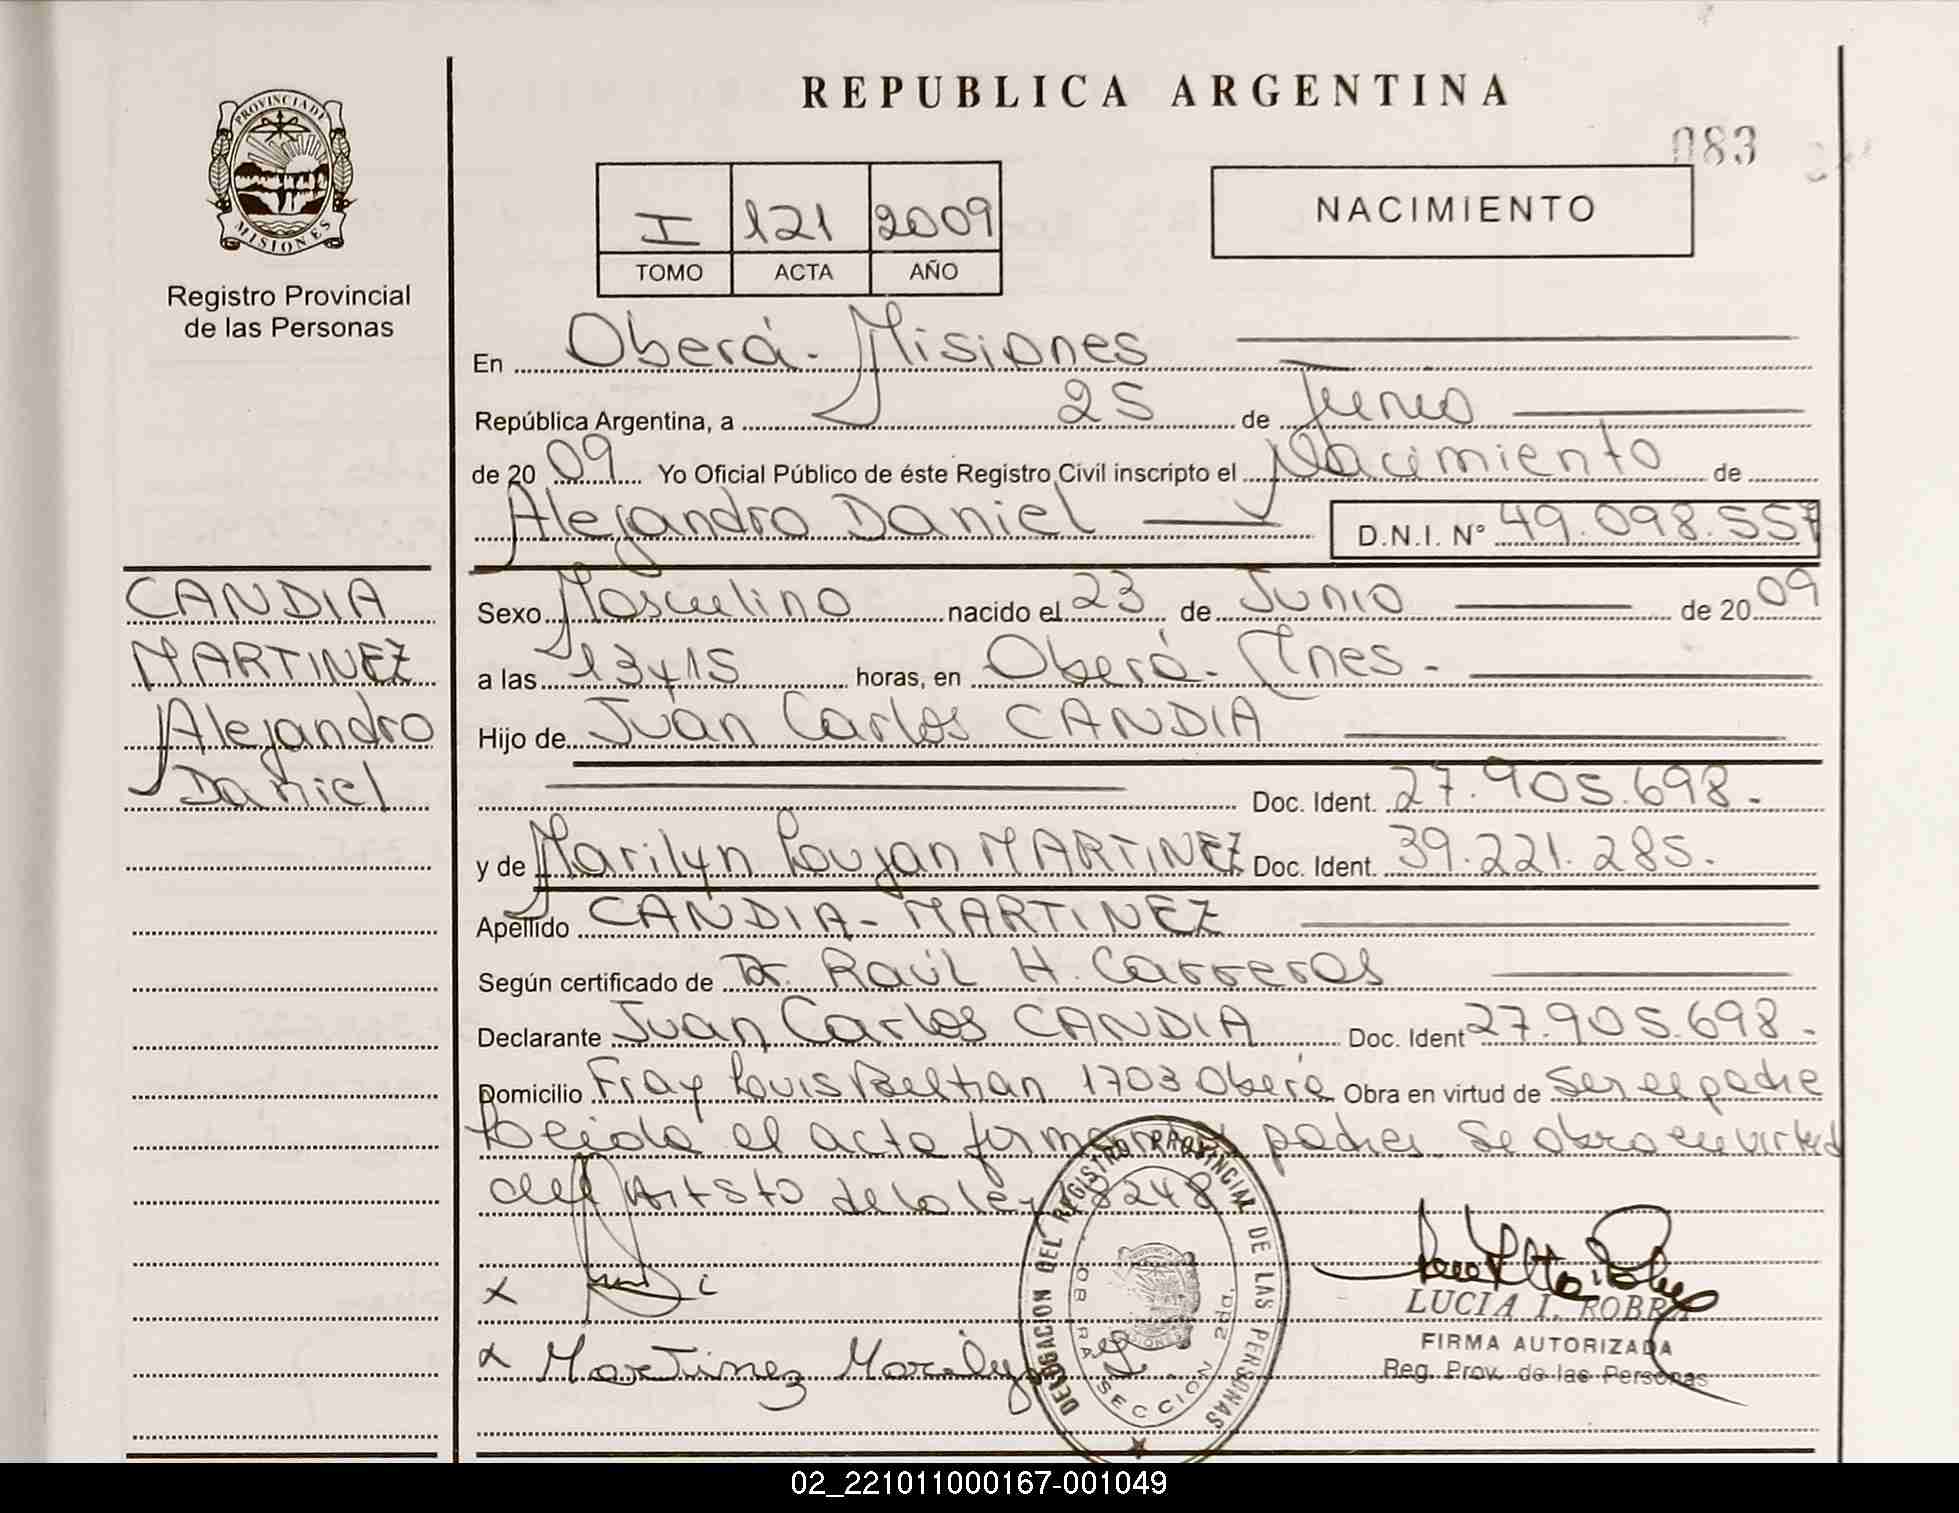 REPUBLICA ARGENTINA
083
PROVINCIA DE
MISIONES
Registro Provincial
de las Personas
I 121 2009
TOMO ACTA AÑO
NACIMIENTO
En Oberá - Misiones
República Argentina, a 25 de Junio
de 20 09 Yo Oficial Público de éste Registro Civil inscripto el Nacimiento de
Alejandro Daniel D.N.I. Nº 49.098.557
CANDIA
MARTINEZ
Alejandro
Daniel
Sexo Masculino nacido el 23 de Junio de 20 09
a las 13 y 15 horas, en Oberá - Mnes -
Hijo de Juan Carlos CANDIA
Doc. Ident. 27.905.698.
y de Marilyn Loujan MARTINEZ Doc. Ident. 39.221.285.
Apellido CANDIA - MARTINEZ
Según certificado de Dr. Raúl H. Carreras
Declarante Juan Carlos CANDIA Doc. Ident 27.905.698.
Domicilio Fray Louis Beltran 1703 Oberá Obra en virtud de ser el padre
Leida el acta firman padres. Se obra en virtud
del Art 5to de la ley 18248
x
x Martinez Marilyn L
DELEGACION DEL REGISTRO PROVINCIAL DE LAS PERSONAS
OBERA SECCION 2da.
LUCIA I. ROBRA
FIRMA AUTORIZADA
Reg. Prov. de las Personas
02_221011000167-001049